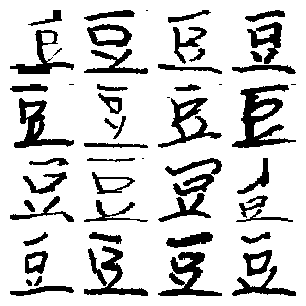 豆豆豆豆
豆豆豆豆
豆豆豆豆
豆豆豆豆